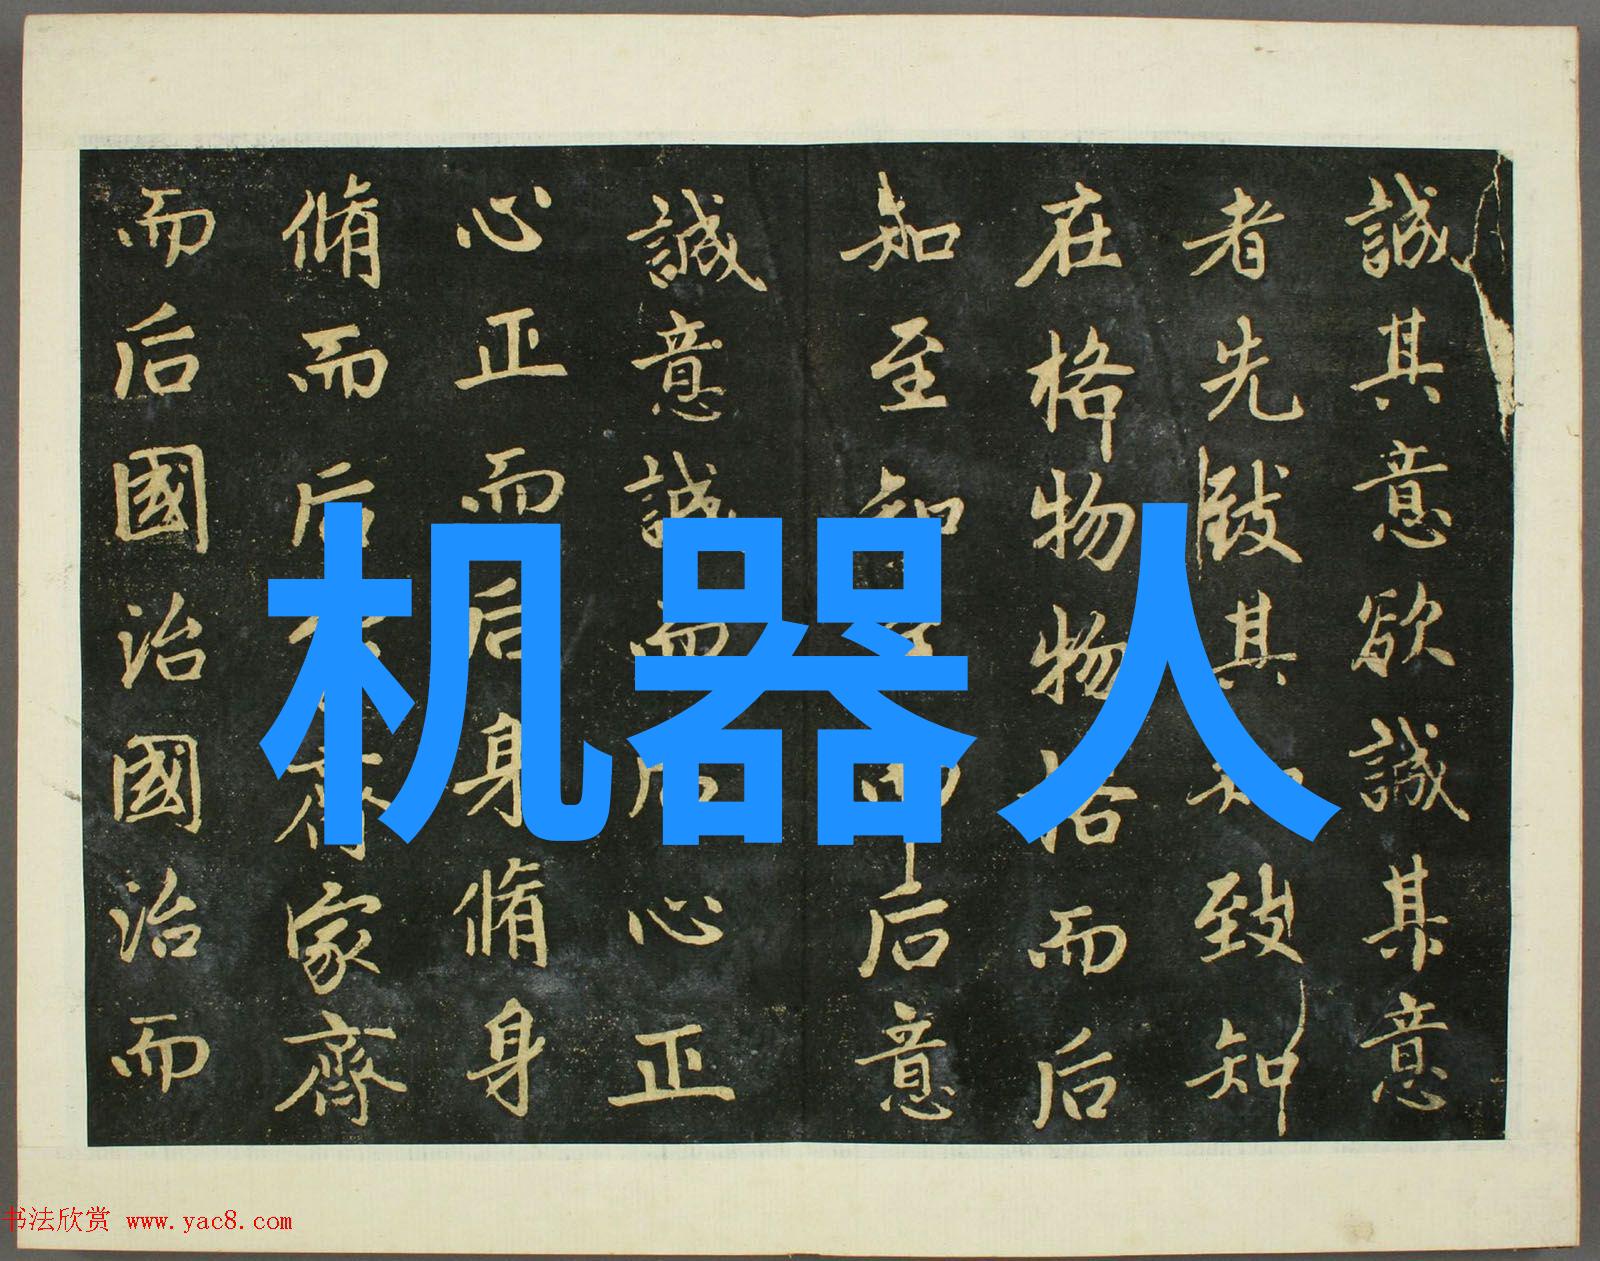 誠其意欲誠其意
者先致其知致知
在格物物格而后
知至知至而后意
誠意誠而后心正
心正而后身脩身
脩而后家齊家齊
而后國治國治而
机器人
书法欣赏 www.yac8.com